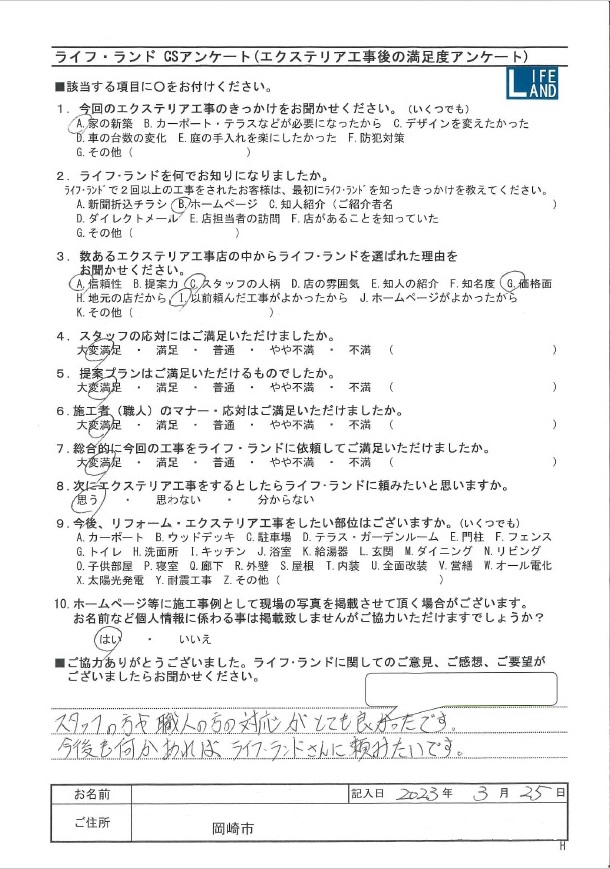 ライフ・ランド CSアンケート(エクステリア工事後の満足度アンケート)
LIFE LAND
■該当する項目に〇をお付けください。
1. 今回のエクステリア工事のきっかけをお聞かせください。(いくつでも)
A.家の新築 B.カーポート・テラスなどが必要になったから C.デザインを変えたかった
D.車の台数の変化 E.庭の手入れを楽にしたかった F.防犯対策
G.その他( )
2. ライフ・ランドを何でお知りになりましたか。
ライフ・ランドで2回以上の工事をされたお客様は、最初にライフ・ランドを知ったきっかけを教えてください。
A.新聞折込チラシ B.ホームページ C.知人紹介(ご紹介者名 )
D.ダイレクトメール E.店担当者の訪問 F.店があることを知っていた
G.その他( )
3. 数あるエクステリア工事店の中からライフ・ランドを選ばれた理由を
お聞かせください。
A.信頼性 B.提案力 C.スタッフの人柄 D.店の雰囲気 E.知人の紹介 F.知名度 G.価格面
H.地元の店だから、I.以前頼んだ工事がよかったから J.ホームページがよかったから
K.その他( )
4. スタッフの応対にはご満足いただけましたか。
大変満足 ・ 満足 ・ 普通 ・ やや不満 ・ 不満 ( )
5. 提案プランはご満足いただけるものでしたか。
大変満足 ・ 満足 ・ 普通 ・ やや不満 ・ 不満 ( )
6. 施工者(職人)のマナー・応対はご満足いただけましたか。
大変満足 ・ 満足 ・ 普通 ・ やや不満 ・ 不満 ( )
7. 総合的に今回の工事をライフ・ランドに依頼してご満足いただけましたか。
大変満足 ・ 満足 ・ 普通 ・ やや不満 ・ 不満 ( )
8. 次にエクステリア工事をするとしたらライフ・ランドに頼みたいと思いますか。
思う ・ 思わない ・ 分からない
9. 今後、リフォーム・エクステリア工事をしたい部位はございますか。(いくつでも)
A.カーポート B.ウッドデッキ C.駐車場 D.テラス・ガーデンルーム E.門柱 F.フェンス
G.トイレ H.洗面所 I.キッチン J.浴室 K.給湯器 L.玄関 M.ダイニング N.リビング
O.子供部屋 P.寝室 Q.廊下 R.外壁 S.屋根 T.内装 U.全面改装 V.営繕 W.オール電化
X.太陽光発電 Y.耐震工事 Z.その他( )
10. ホームページ等に施工事例として現場の写真を掲載させて頂く場合がございます。
お名前など個人情報に係わる事は掲載致しませんがご協力いただけますでしょうか?
はい ・ いいえ
■ご協力ありがとうございました。ライフ・ランドに関してのご意見、ご感想、ご要望が
ございましたらお聞かせください。
スタッフの方も職人の方の対応がとても良かったです。
今後も何かあれば、ライフ・ランドさんに頼みたいです。
お名前 記入日 2023 年 3 月 25 日
ご住所 岡崎市
H